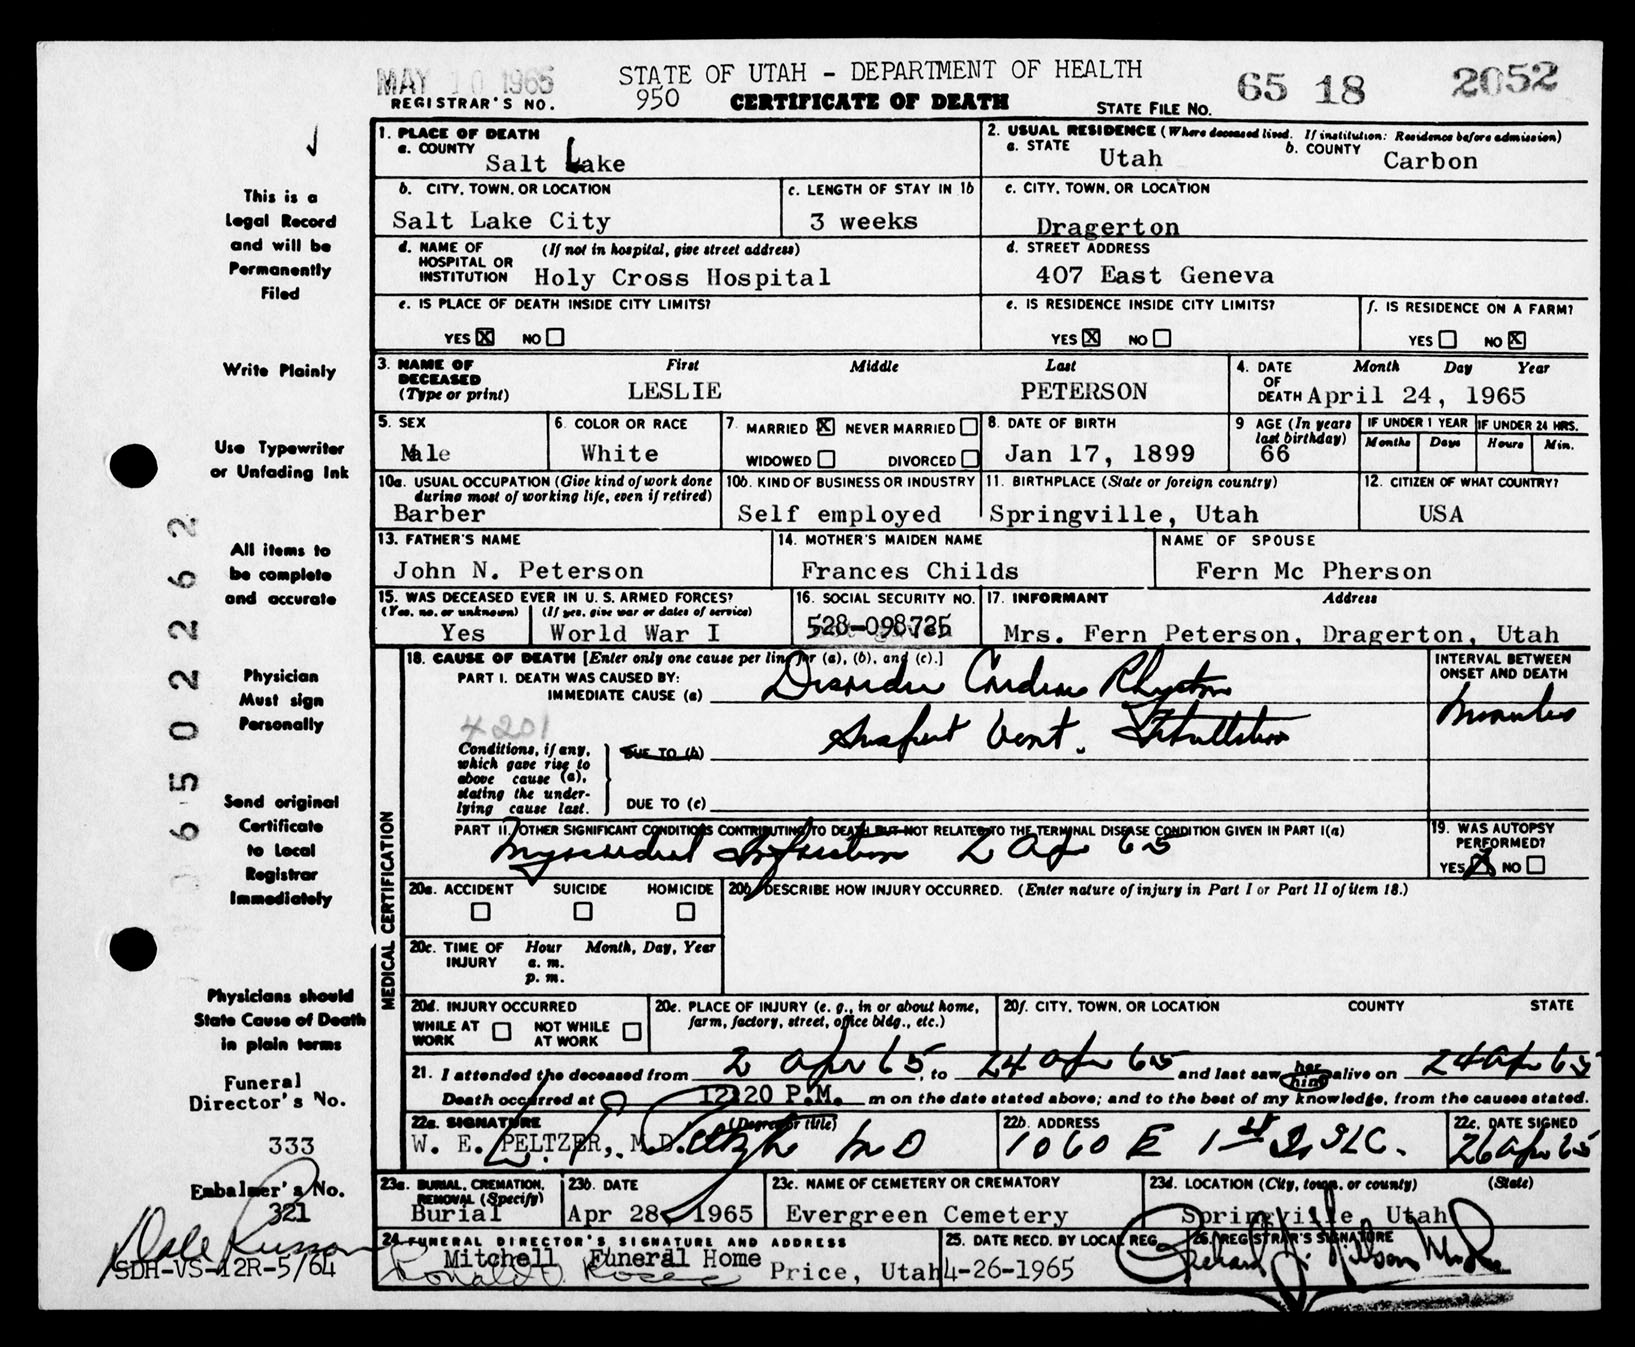 MAY 10 1965
STATE OF UTAH - DEPARTMENT OF HEALTH
65 18 2052
REGISTRAR'S NO. 950
CERTIFICATE OF DEATH
STATE FILE NO.
This is a
Legal Record
and will be
Permanently
Filed
Write Plainly
Use Typewriter
or Unfading Ink
All items to
be complete
and accurate
Physician
Must sign
Personally
Send original
Certificate
to Local
Registrar
Immediately
Physicians should
State Cause of Death
in plain terms
Funeral
Director's No.
333
Embalmer's No.
321
SDH-VS-12R-5/64
65022262
1. PLACE OF DEATH
a. COUNTY
Salt Lake
2. USUAL RESIDENCE (Where deceased lived. If institution: Residence before admission)
a. STATE Utah
b. COUNTY Carbon
b. CITY, TOWN, OR LOCATION
Salt Lake City
c. LENGTH OF STAY IN 1b
3 weeks
c. CITY, TOWN, OR LOCATION
Dragerton
d. NAME OF (If not in hospital, give street address)
HOSPITAL OR
INSTITUTION Holy Cross Hospital
d. STREET ADDRESS
407 East Geneva
e. IS PLACE OF DEATH INSIDE CITY LIMITS?
YES X NO
e. IS RESIDENCE INSIDE CITY LIMITS?
YES X NO
f. IS RESIDENCE ON A FARM?
YES NO X
3. NAME OF First Middle Last
DECEASED
(Type or print) LESLIE PETERSON
4. DATE Month Day Year
OF
DEATH April 24, 1965
5. SEX
Male
6. COLOR OR RACE
White
7. MARRIED X NEVER MARRIED
WIDOWED DIVORCED
8. DATE OF BIRTH
Jan 17, 1899
9 AGE (In years
last birthday)
66
IF UNDER 1 YEAR IF UNDER 24 HRS.
Months Days Hours Min.
10a. USUAL OCCUPATION (Give kind of work done
during most of working life, even if retired)
Barber
10b. KIND OF BUSINESS OR INDUSTRY
Self employed
11. BIRTHPLACE (State or foreign country)
Springville, Utah
12. CITIZEN OF WHAT COUNTRY?
USA
13. FATHER'S NAME
John N. Peterson
14. MOTHER'S MAIDEN NAME
Frances Childs
NAME OF SPOUSE
Fern Mc Pherson
15. WAS DECEASED EVER IN U. S. ARMED FORCES?
(Yes, no, or unknown) (If yes, give war or dates of service)
Yes World War I
16. SOCIAL SECURITY NO.
528-098725
17. INFORMANT Address
Mrs. Fern Peterson, Dragerton, Utah
MEDICAL CERTIFICATION
18. CAUSE OF DEATH [Enter only one cause per line for (a), (b), and (c).]
PART I. DEATH WAS CAUSED BY:
IMMEDIATE CAUSE (a) Disorder Cardiac Rhythm
INTERVAL BETWEEN
ONSET AND DEATH
minutes
4201
Conditions, if any,
which gave rise to
above cause (a),
stating the under-
lying cause last.
DUE TO (b)
Suspect Vent. Fibrillation
DUE TO (c)
PART II. OTHER SIGNIFICANT CONDITIONS CONTRIBUTING TO DEATH BUT NOT RELATED TO THE TERMINAL DISEASE CONDITION GIVEN IN PART I(a)
Myocardial Infarction 2 Apr 65
19. WAS AUTOPSY
PERFORMED?
YES X NO
20a. ACCIDENT SUICIDE HOMICIDE
20b. DESCRIBE HOW INJURY OCCURRED. (Enter nature of injury in Part I or Part II of item 18.)
20c. TIME OF Hour Month, Day, Year
INJURY a. m.
p. m.
20d. INJURY OCCURRED
WHILE AT WORK NOT WHILE AT WORK
20e. PLACE OF INJURY (e. g., in or about home,
farm, factory, street, office bldg., etc.)
20f. CITY, TOWN, OR LOCATION COUNTY STATE
21. I attended the deceased from 2 Apr 65, to 24 Apr 65 and last saw her him alive on 24 Apr 65
Death occurred at 12:20 P.M. m on the date stated above; and to the best of my knowledge, from the causes stated.
22a. SIGNATURE (Degree or title)
W. E. PELTZER, M.D. MD
22b. ADDRESS
1060 E 1st So SLC.
22c. DATE SIGNED
26 Apr 65
23a. BURIAL, CREMATION,
REMOVAL (Specify)
Burial
23b. DATE
Apr 28, 1965
23c. NAME OF CEMETERY OR CREMATORY
Evergreen Cemetery
23d. LOCATION (City, town, or county) (State)
Springville, Utah
24. FUNERAL DIRECTOR'S SIGNATURE AND ADDRESS
Mitchell Funeral Home Price, Utah
25. DATE RECD. BY LOCAL REG.
4-26-1965
26. REGISTRAR'S SIGNATURE